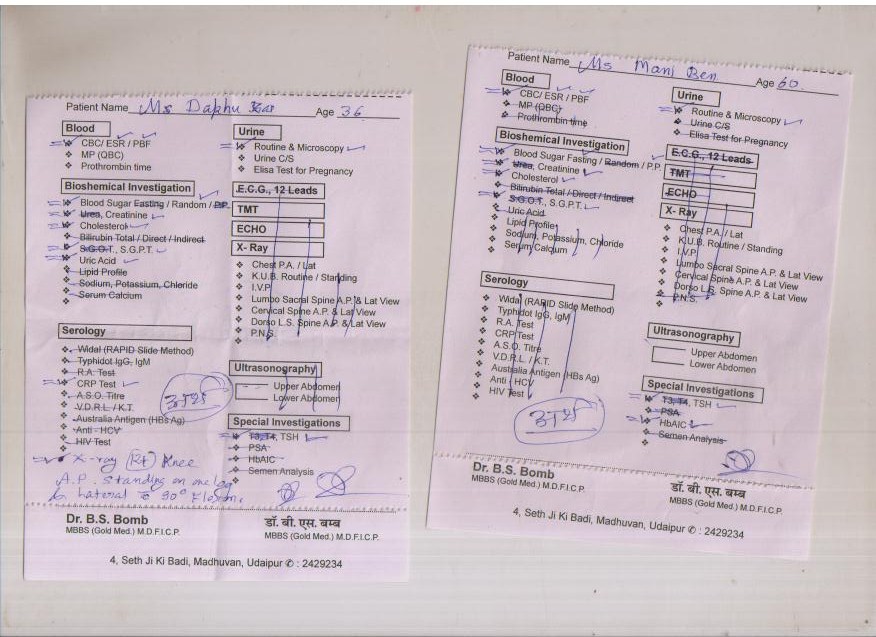 Patient Name Ms Age 36
Blood
CBC/ ESR / PBF
MP (QBC)
Prothrombin time
Bioshemical Investigation
Blood Sugar Fasting / Random / P.P.
Urea, Creatinine
Cholesterol
Bilirubin Total / Direct / Indirect
S.G.O.T., S.G.P.T.
Uric Acid
Lipid Profile
Sodium, Potassium, Chloride
Serum Calcium
Serology
Widal (RAPID Slide Method)
Typhidot IgG, IgM
R.A. Test
CRP Test
A.S.O. Titre
V.D.R.L./ K.T.
Australia Antigen (HBs Ag)
Anti - HCV
HIV Test
X-ray (Rt) Knee
A.P. Standing on one leg
Urine
Routine & Microscopy
Urine C/S
Elisa Test for Pregnancy
E.C.G., 12 Leads
TMT
ECHO
X- Ray
Chest P.A. / Lat
K.U.B. Routine / Standing
I.V.P.
Lumbo Sacral Spine A.P. & Lat View
Cervical Spine A.P. & Lat View
Dorso L.S. Spine A.P. & Lat View
P.N.S.
Ultrasonography
Upper Abdomen
Lower Abdomen
Special Investigations
T3, T4, TSH
PSA
HbAIC
Semen Analysis
Dr. B.S. Bomb
MBBS (Gold Med.) M.D.F.I.C.P.
डॉ. बी. एस. बम्ब
MBBS (Gold Med.) M.D.F.I.C.P.
4, Seth Ji Ki Badi, Madhuvan, Udaipur ✆ : 2429234
Patient Name Ms Mani Ben Age 60
Blood
CBC/ ESR / PBF
MP (QBC)
Prothrombin time
Bioshemical Investigation
Blood Sugar Fasting / Random / P.P.
Urea, Creatinine
Cholesterol
Bilirubin Total / Direct / Indirect
S.G.O.T., S.G.P.T.
Uric Acid
Lipid Profile
Sodium, Potassium, Chloride
Serum Calcium
Serology
Widal (RAPID Slide Method)
Typhidot IgG, IgM
R.A. Test
CRP Test
A.S.O. Titre
V.D.R.L./ K.T.
Australia Antigen (HBs Ag)
Anti - HCV
HIV Test
Urine
Routine & Microscopy
Urine C/S
Elisa Test for Pregnancy
E.C.G., 12 Leads
TMT
ECHO
X- Ray
Chest P.A. / Lat
K.U.B. Routine / Standing
I.V.P.
Lumbo Sacral Spine A.P. & Lat View
Cervical Spine A.P. & Lat View
Dorso L.S. Spine A.P. & Lat View
P.N.S.
Ultrasonography
Upper Abdomen
Lower Abdomen
Special Investigations
T3, T4, TSH
PSA
HbAIC
Semen Analysis
Dr. B.S. Bomb
MBBS (Gold Med.) M.D.F.I.C.P.
डॉ. बी. एस. बम्ब
MBBS (Gold Med.) M.D.F.I.C.P.
4, Seth Ji Ki Badi, Madhuvan, Udaipur ✆ : 2429234